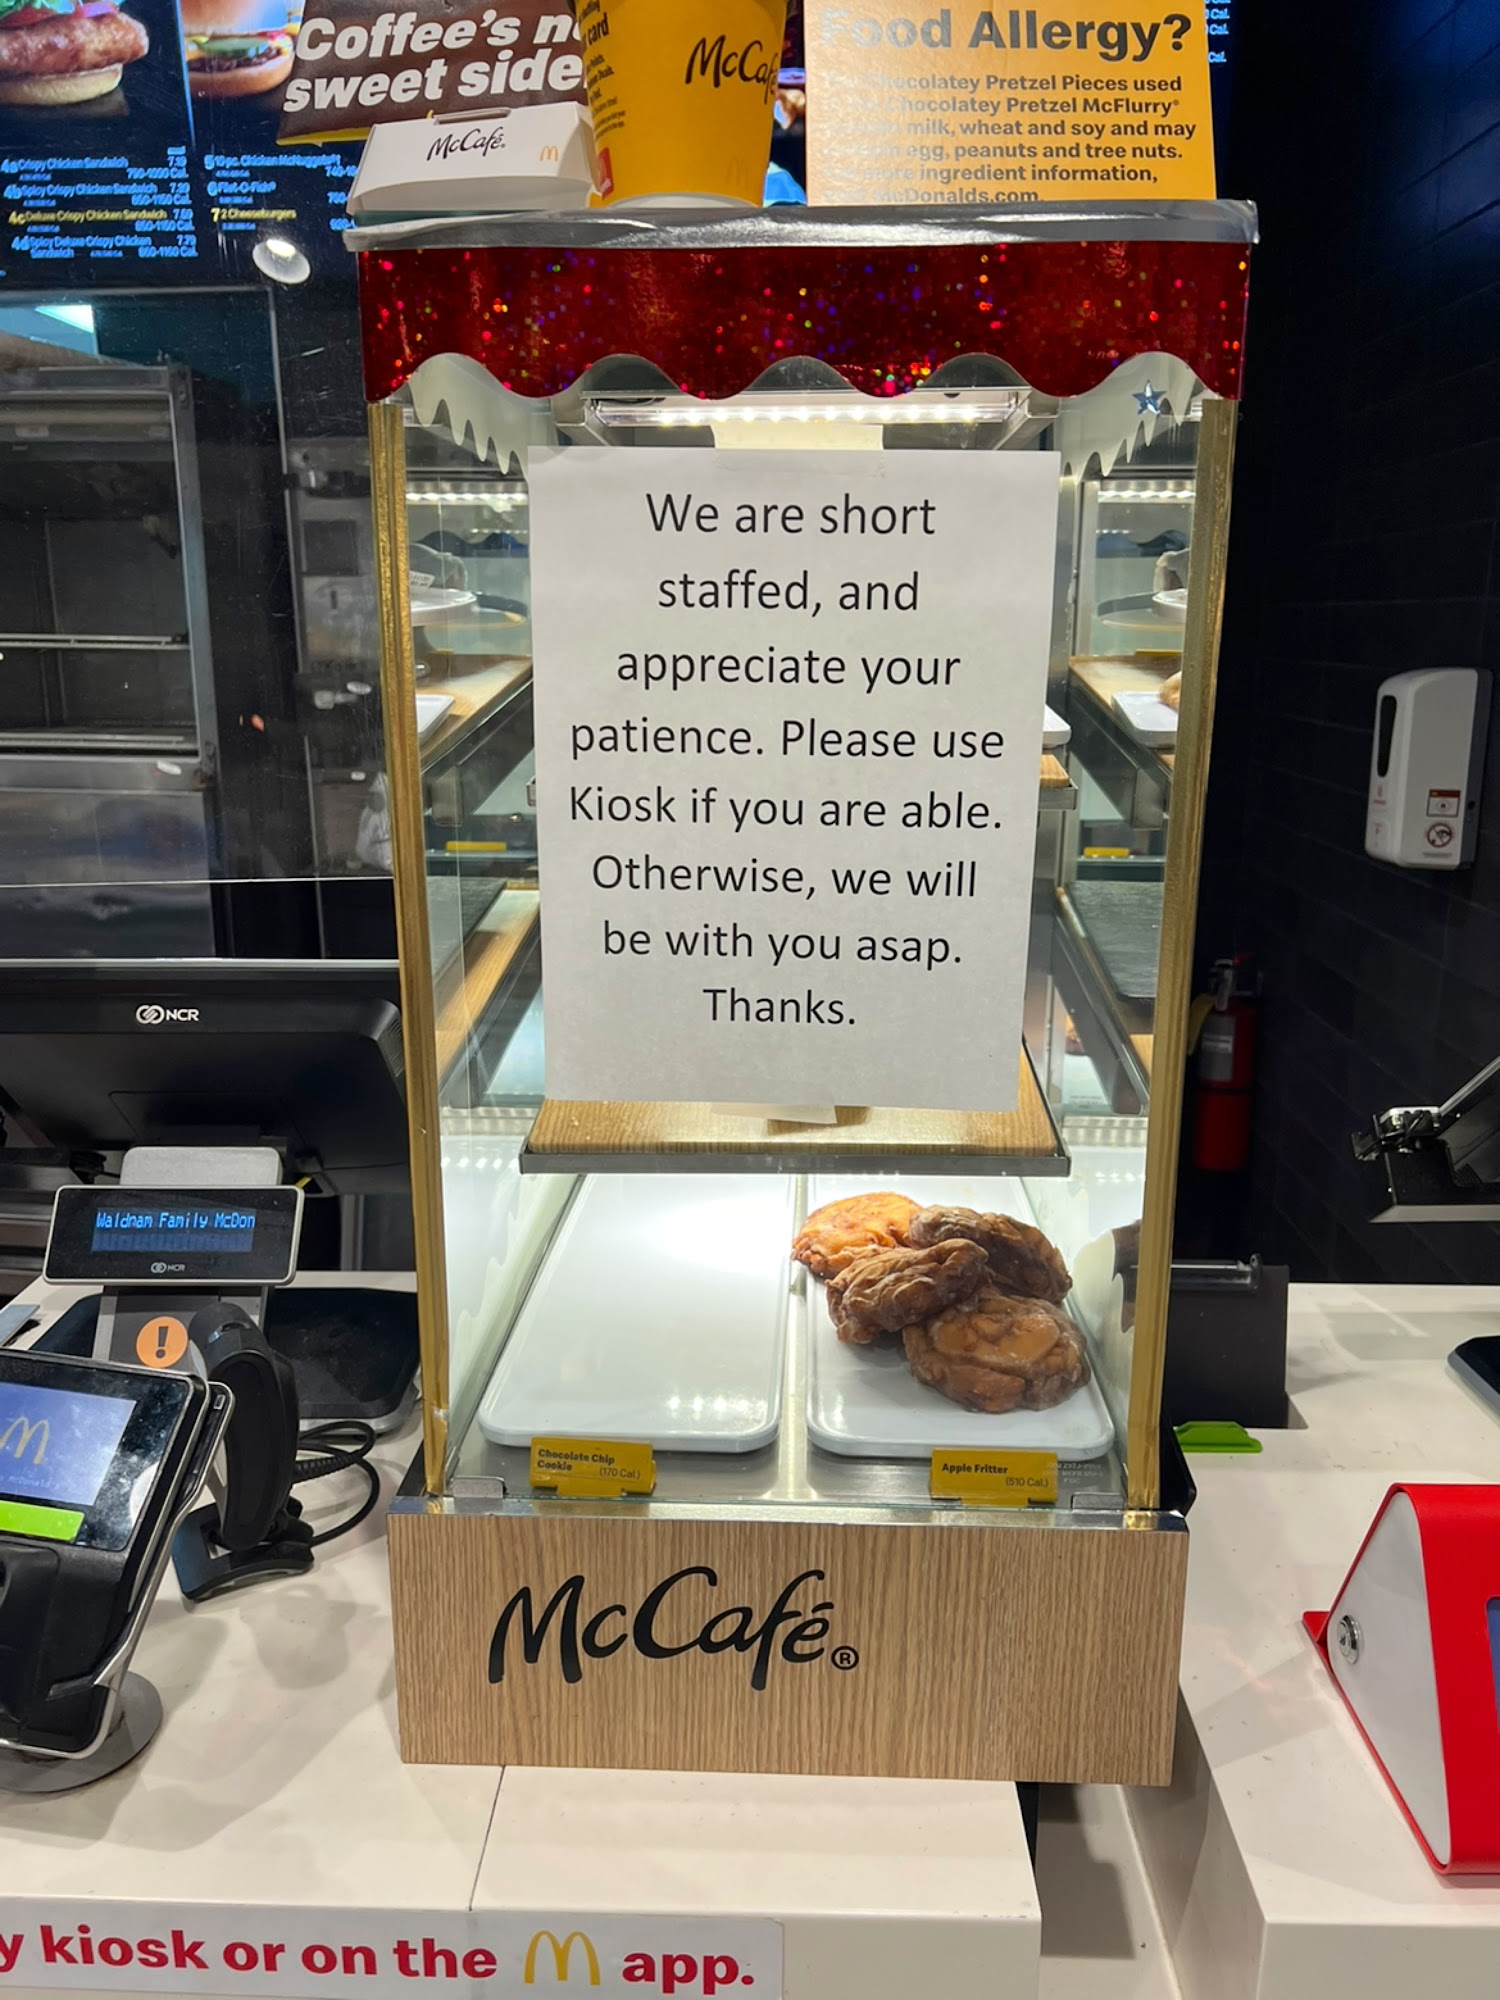 Coffee's
sweet side
McCafé.
card
McCafé
Food Allergy?
Chocolatey Pretzel Pieces used
Chocolatey Pretzel McFlurry®
milk, wheat and soy and may
egg, peanuts and tree nuts.
ingredient information,
McDonalds.com.
4a Crispy Chicken Sandwich 7.19
700-1000 Cal.
4b Spicy Crispy Chicken Sandwich 7.39
650-1150 Cal.
4c Deluxe Crispy Chicken Sandwich 7.69
650-1150 Cal.
4d Spicy Deluxe Crispy Chicken 7.79
Sandwich 650-1160 Cal.
5 10 pc. Chicken McNuggets®
6 Filet-O-Fish®
7 2 Cheeseburgers
We are short
staffed, and
appreciate your
patience. Please use
Kiosk if you are able.
Otherwise, we will
be with you asap.
Thanks.
NCR
Waldnam Family McDon
NCR
!
Chocolate Chip
Cookie (170 Cal.)
Apple Fritter
(510 Cal.)
McCafé®
kiosk or on the app.